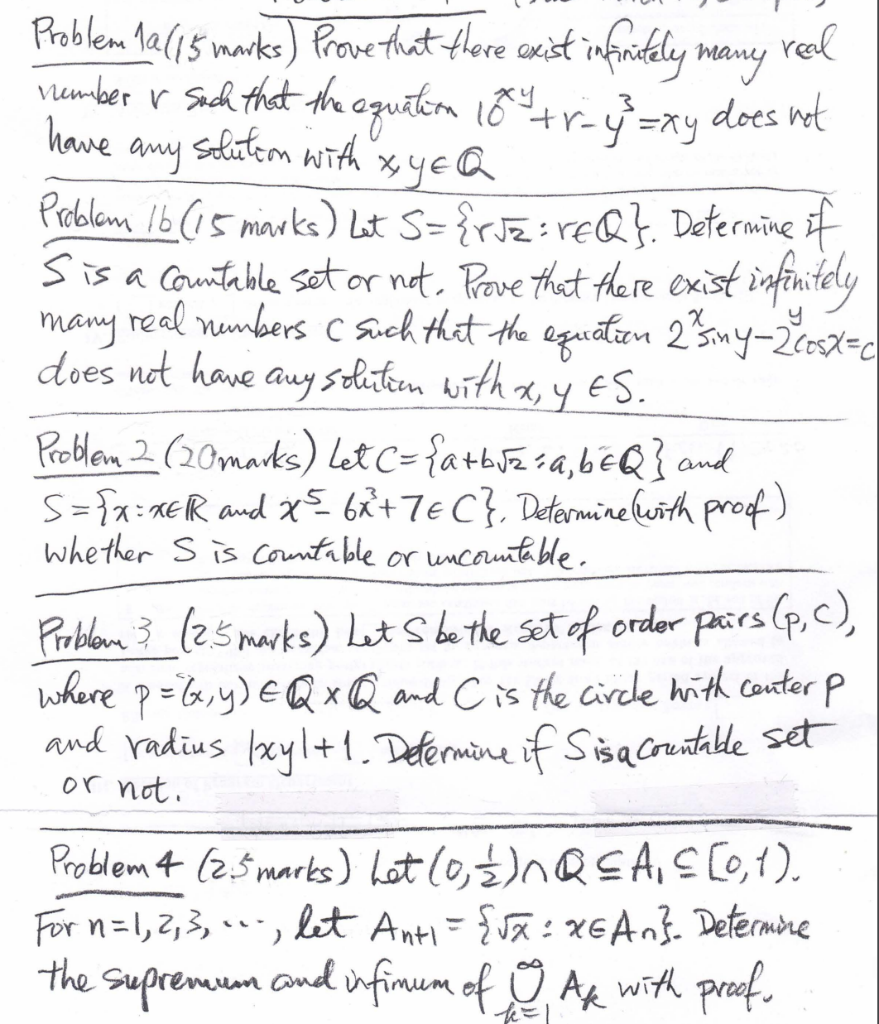 Problem 1a (15 marks) Prove that there exist infinitely many real
number r such that the equation 10^{xy}+r-y^3=xy does not
have any solution with x,y∈Q
Problem 1b (15 marks) Let S={r√2:r∈Q}. Determine if
S is a countable set or not. Prove that there exist infinitely
many real numbers c such that the equation 2^x sin y-2^y cos x=c
does not have any solution with x, y ∈S.
Problem 2 (20 marks) Let C={a+b√2:a,b∈Q} and
S={x:x∈R and x^5-6x^3+7∈C}. Determine (with proof)
whether S is countable or uncountable.
Problem 3 (25 marks) Let S be the set of order pairs (p,C),
where p=(x,y)∈Q×Q and C is the circle with center p
and radius |xy|+1. Determine if S is a countable set
or not.
Problem 4 (25 marks) Let (0,1/2)∩Q⊆A_1⊆[0,1).
For n=1,2,3,..., let A_{n+1}={√x:x∈A_n}. Determine
the supremum and infimum of ∪_{k=1}^∞ A_k with proof.